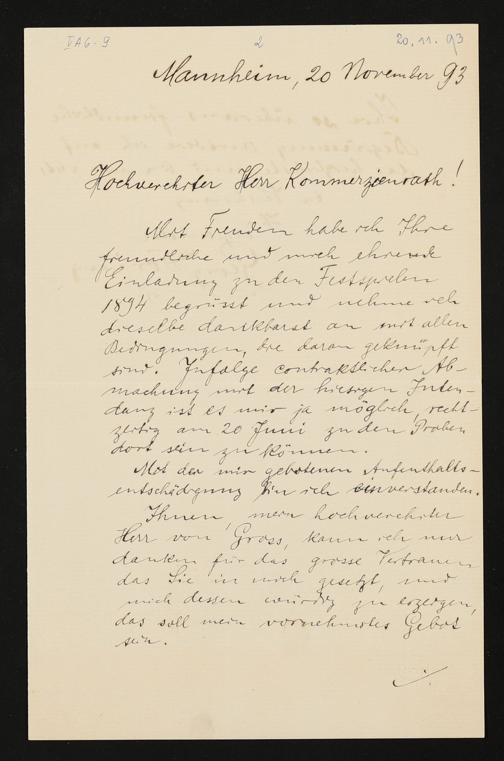 VA6-9 2 20.11.93
Mannheim, 20 November 93
Hochverehrter Herr Kommerzienrath!
Mit Freuden habe ich Ihre
freundliche und mich ehrende
Einladung zu den Festspielen
1894 begrüsst und nehme ich
dieselbe dankbarst an mit allen
Bedingungen, die daran geknüpft
sind. Infolge contraktlicher Ab-
machung mit der hiesigen Inten-
danz ist es mir ja möglich, recht-
zeitig am 20 Juni zu den Proben
dort sein zu können.
Mit der mir gebotenen Aufenthalts-
entschädigung bin ich einverstanden.
Ihnen, mein hochverehrter
Herr von Gross, kann ich nur
danken für das grosse Vertrauen
das Sie in mich gesetzt, und
mich dessen würdig zu erzeigen,
das soll mein vornehmstes Gebot
sein.